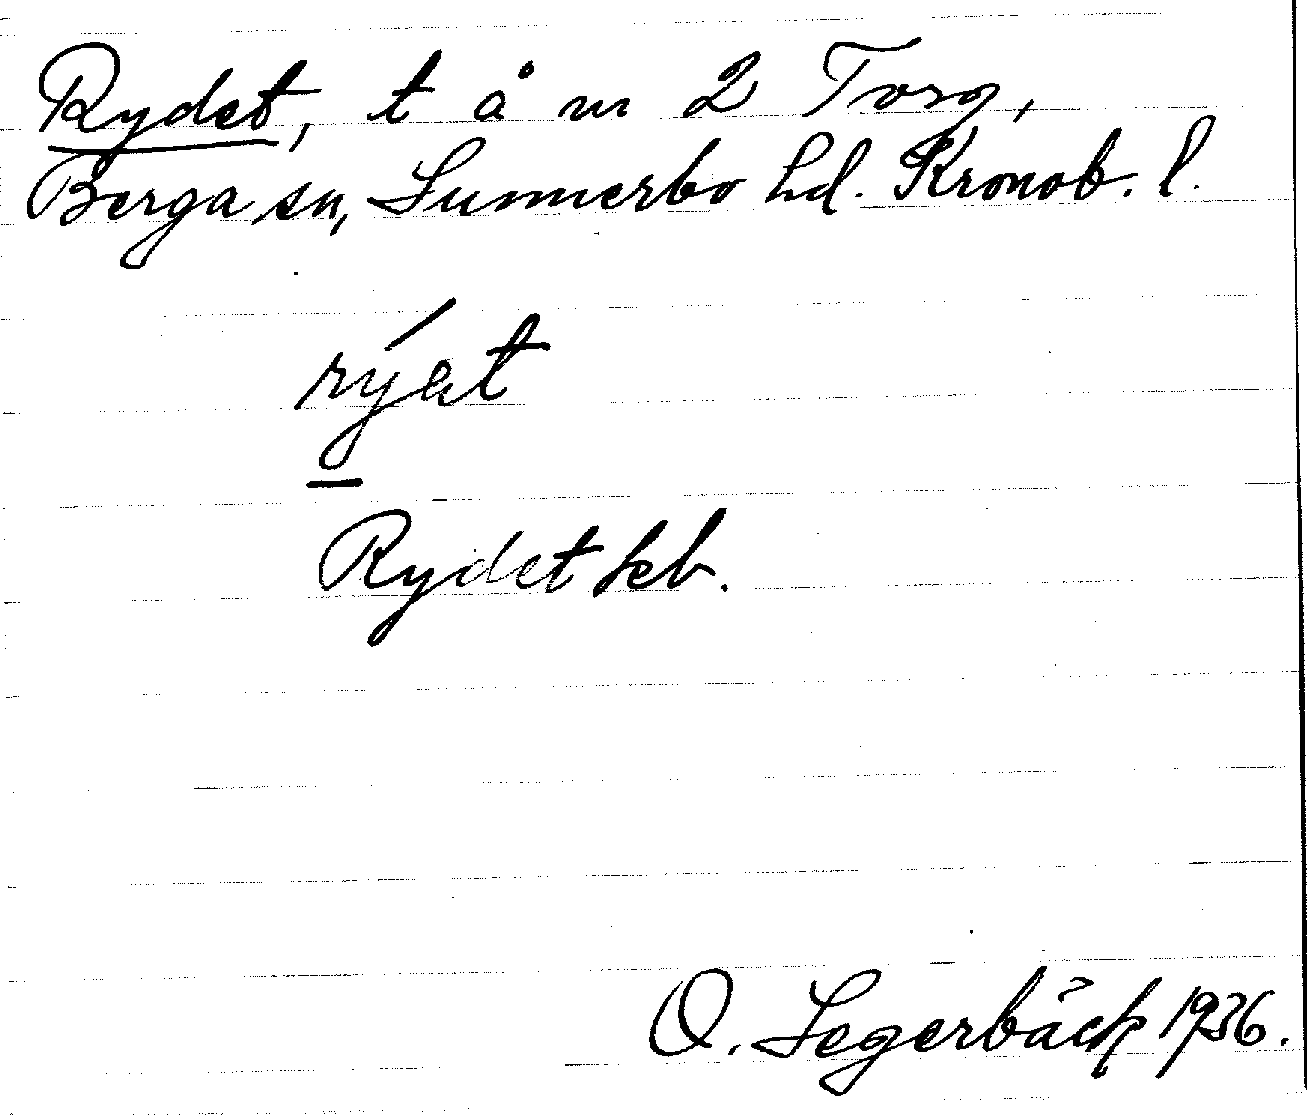 Rydet, t å m 2 Torg,
Berga sn, Sunnerbo hd. Kronob. l.
rýat
Rydet jeb.
O. Segerbäck 1936.